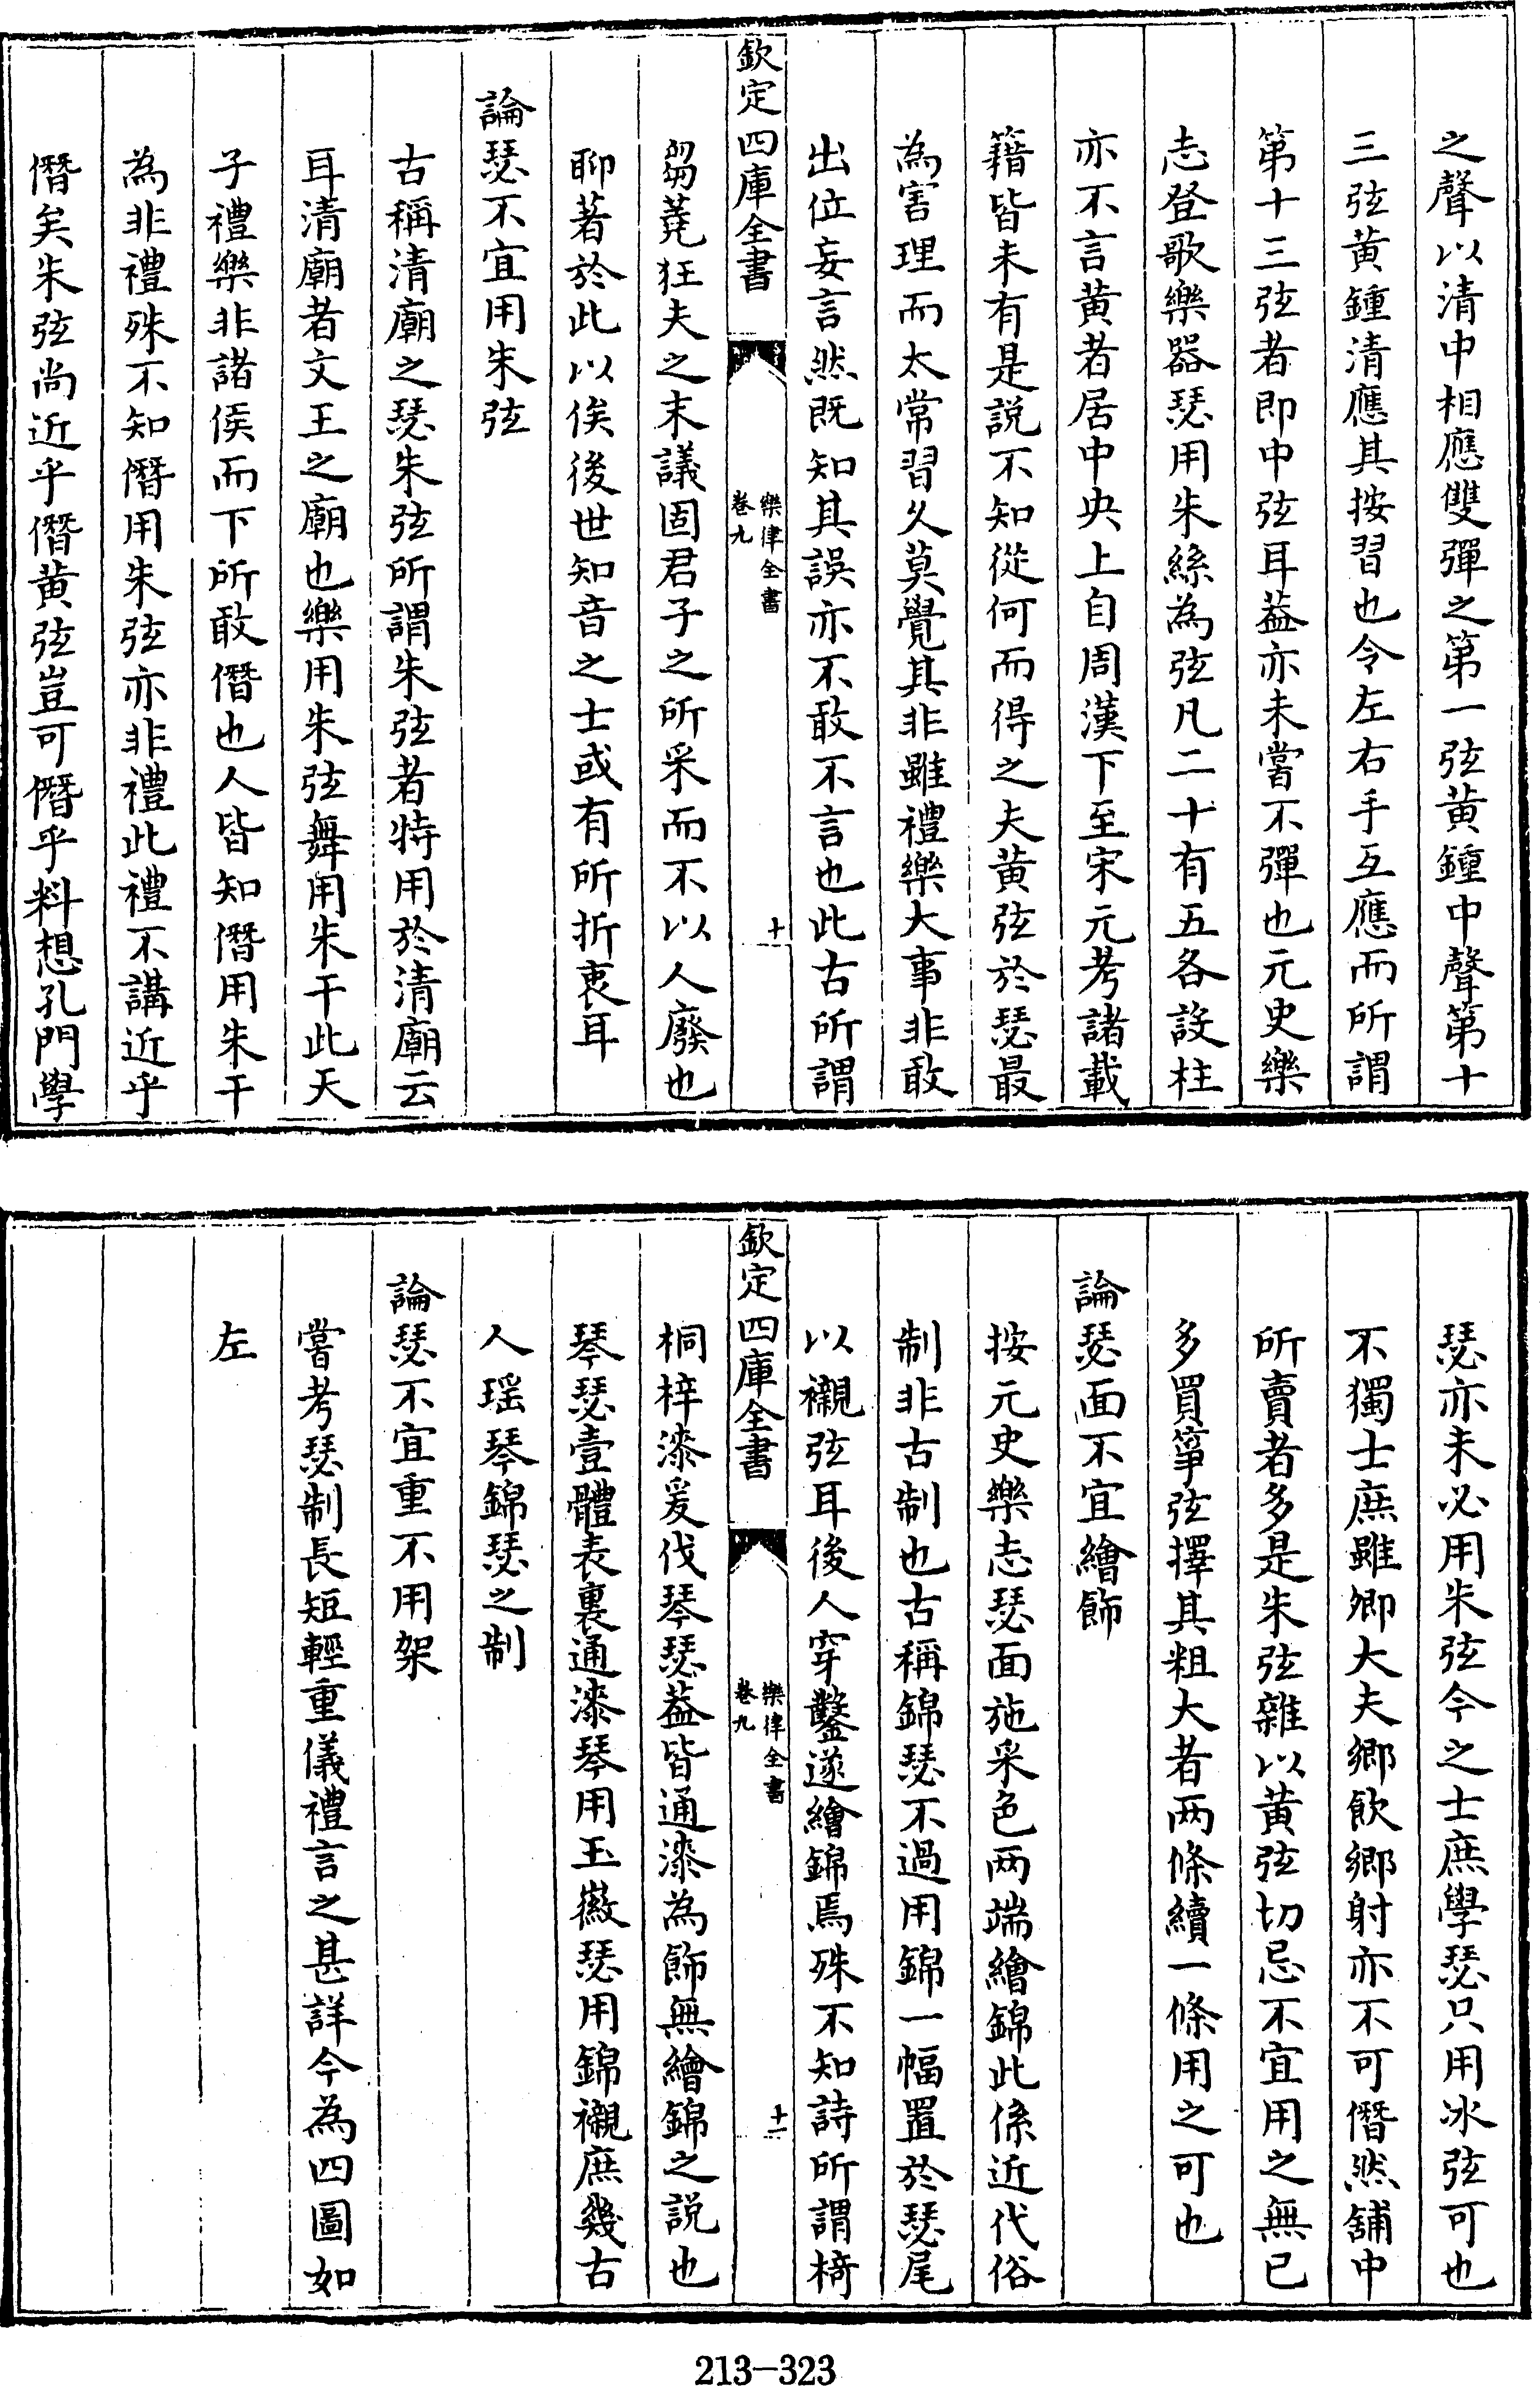 之聲以清中相應雙彈之第一弦黄鍾中聲第十
三弦黄鍾清應其按習也令左右手互應而所謂
第十三弦者即中弦耳葢亦未嘗不彈也元史樂
志登歌樂器瑟用朱絲為弦凡二十有五各設柱
亦不言黄者居中央上自周漢下至宋元考諸載
籍皆未有是説不知從何而得之夫黄弦於瑟最
為害理而太常習久莫覺其非雖禮樂大事非敢
出位妄言然既知其誤亦不敢不言也此古所謂
欽定四庫全書
樂律全書
卷九
十
芻蕘狂夫之末議固君子之所采而不以人廢也
聊著於此以俟後世知音之士或有所折衷耳
論瑟不宜用朱弦
古稱清廟之瑟朱弦所謂朱弦者特用於清廟云
耳清廟者文王之廟也樂用朱弦舞用朱干此天
子禮樂非諸侯而下所敢僭也人皆知僭用朱干
為非禮殊不知僭用朱弦亦非禮此禮不講近乎
僭矣朱弦尚近乎僭黄弦豈可僭乎料想孔門學
瑟亦未必用朱弦今之士庶學瑟只用冰弦可也
不獨士庶雖卿大夫鄉飲鄉射亦不可僭然舖中
所賣者多是朱弦雜以黄弦切忌不宜用之無已
多買筝弦擇其粗大者两條續一條用之可也
論瑟面不宜繪飾
按元史樂志瑟面施采色两端繪錦此係近代俗
制非古制也古稱錦瑟不過用錦一幅置於瑟尾
以襯弦耳後人穿鑿遂繪錦焉殊不知詩所謂椅
欽定四庫全書
樂律全書
卷九
十一
桐梓漆爰伐琴瑟葢皆通漆為飾無繪錦之説也
琴瑟壹體表裏通漆琴用玉徽瑟用錦襯庶幾古
人瑶琴錦瑟之制
論瑟不宜重不用架
嘗考瑟制長短輕重儀禮言之甚詳今為四圖如
左
213-323